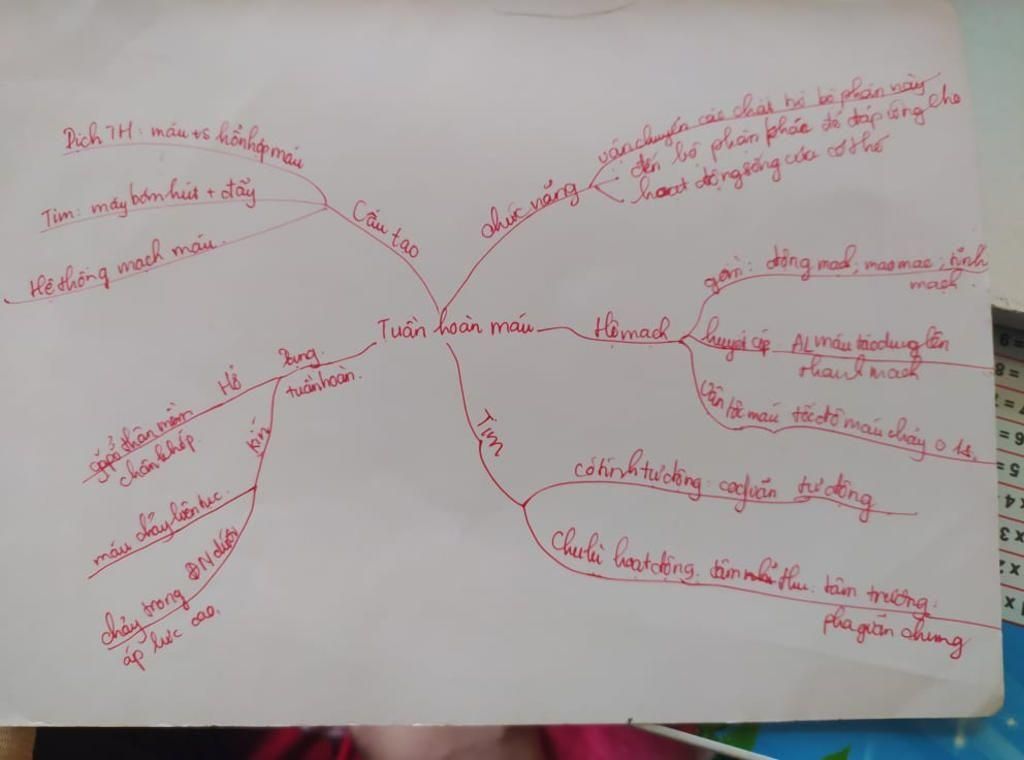 Tuần hoàn máu
Cấu tạo
Dịch TH: máu + hỗn hợp máu
Tim: máy bơm hút + đẩy
Hệ thống mạch máu.
chức năng
vận chuyển các chất từ bộ phận này
đến bộ phận khác để đáp ứng cho
hoạt động sống của cơ thể
Hệ mạch
gồm: động mạch, mao mạc, tĩnh
mạch.
huyết áp AL máu tác dụng lên
thành mạch
Vận tốc máu tốc độ máu chảy 1s.
Tim
có tính tự động: tự động
Chu kì hoạt động. tâm thu. tâm trương.
pha giãn chung
Dạng
tuần hoàn.
Hở
gặp ở thân mềm
chân khớp.
kín
máu chảy liên tục.
ĐN dưới
chảy trong
áp lực cao.
= 9
= 8
= 6
= 5
x 4
x 3
x 2
x 1